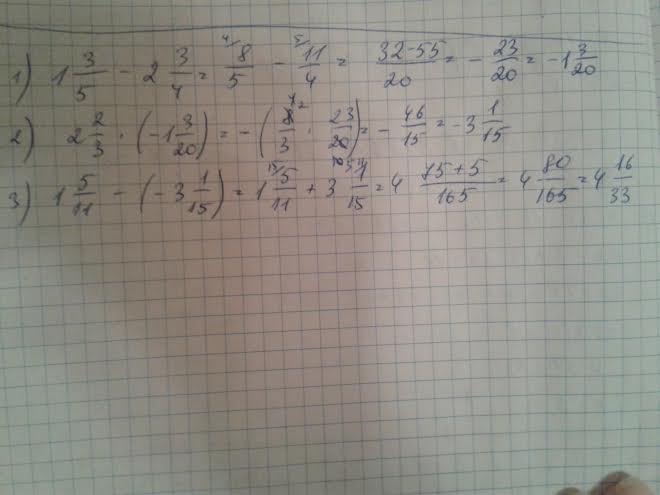 1) 1 3/5 - 2 3/4 = 8/5 - 11/4 = (32-55)/20 = - 23/20 = -1 3/20
2) 2 2/3 · (-1 3/20) = - (8/3 · 23/20) = - 46/15 = -3 1/15
3) 1 5/11 - (-3 1/15) = 1 5/11 + 3 1/15 = 4 (75+5)/165 = 4 80/165 = 4 16/33